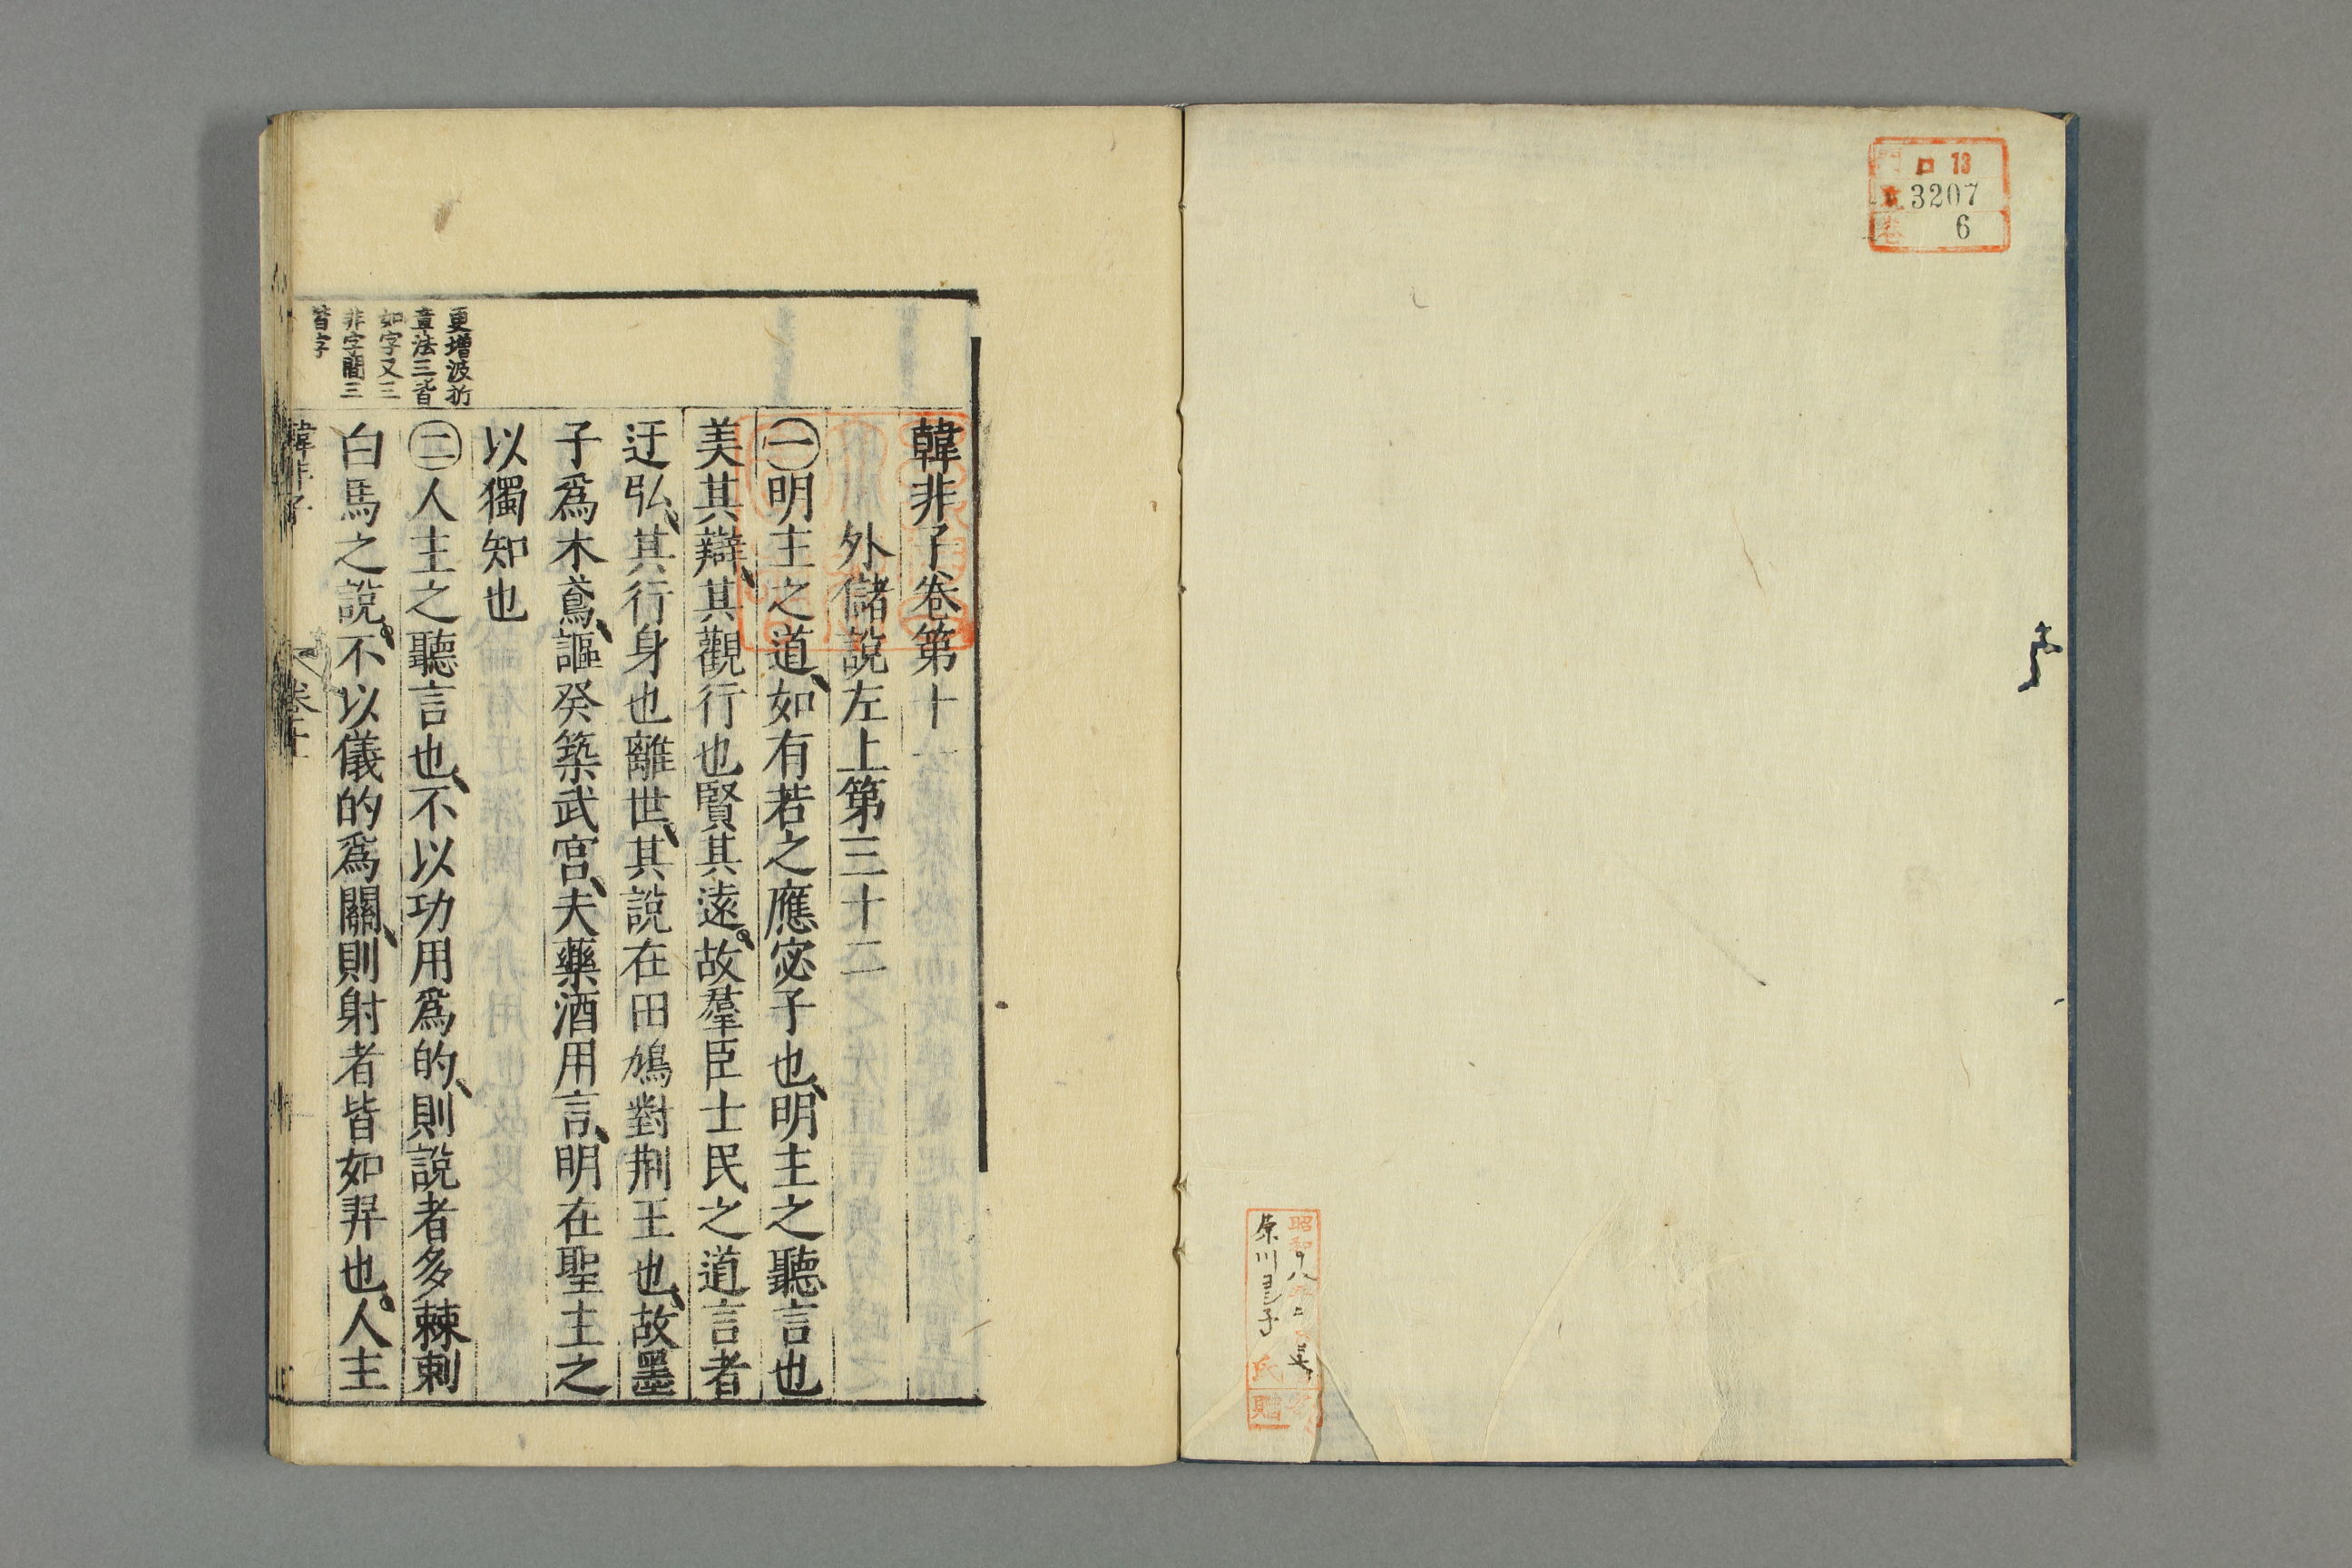 ロ 13
3207
6
昭和十八年
氏
贈
韓非子卷第十一
外儲說左上第三十二
㊀明主之道、如有若之應宓子也、明主之聽言也
美其辯、其觀行也賢其遠。故羣臣士民之道言者
迂弘、其行身也離世、其說在田鳩對荆王也、故墨
子爲木鳶、謳癸築武宮、夫藥酒用言、明在聖主之
以獨知也
㊁人主之聽言也、不以功用爲的、則說者多棘刺
白馬之說。不以儀的爲關、則射者皆如羿也。人主
更增波折
章法三皆
如字又三
非字間三
皆字
韓非子
卷十一